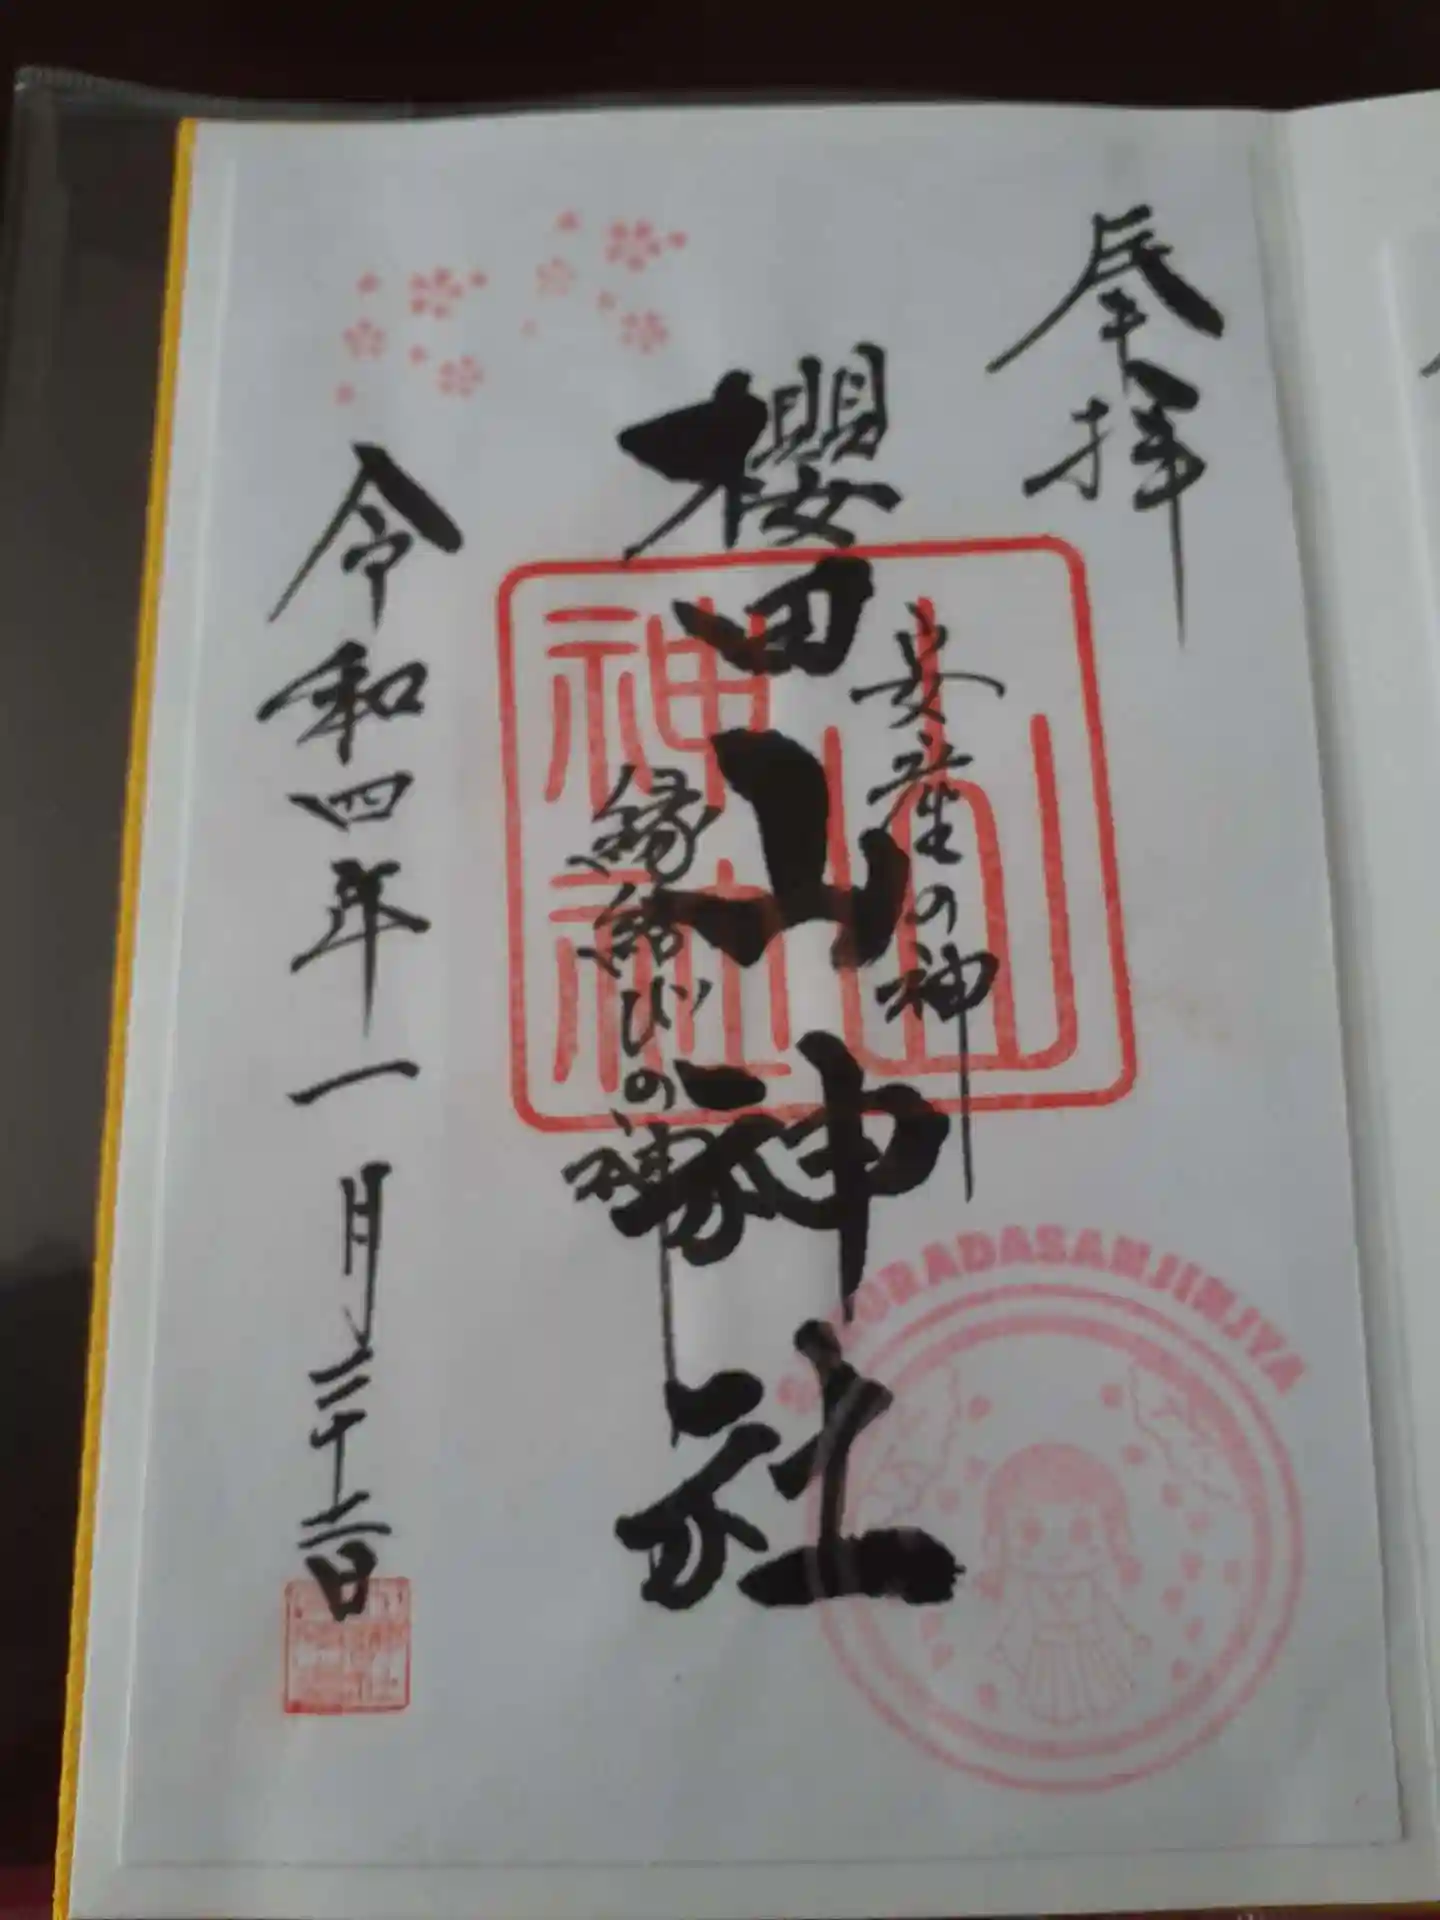 奉拝
安産の神
櫻田山神社
縁結びの神様
令和四年一月二十二日
山神社
SAKURADASANJINJYA